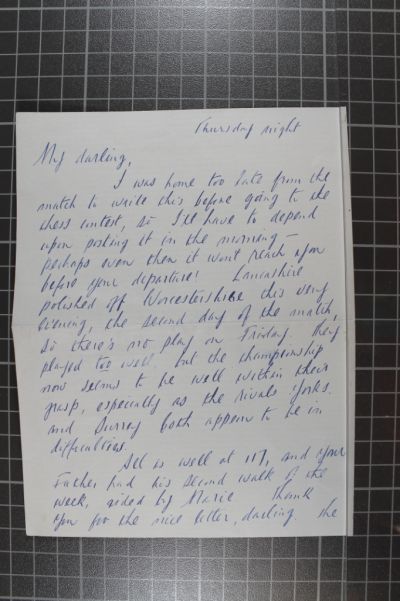 Thursday night
My darling,
I was home too late from the
match to write this before going to the
chess contest, so I'll have to depend
upon posting it in the morning —
perhaps even then it won't reach you
before your departure! Lancashire
polished off Worcestershire this very
evening, the second day of the match,
so there's no play on Friday. They
played too well, but the championship
now seems to be well within their
grasp, especially as the rivals Yorks.
and Surrey both appear to be in
difficulties.
All is well at 117, and your
Father had his second walk of the
week, aided by Marie Thank
you for the nice letter, darling she